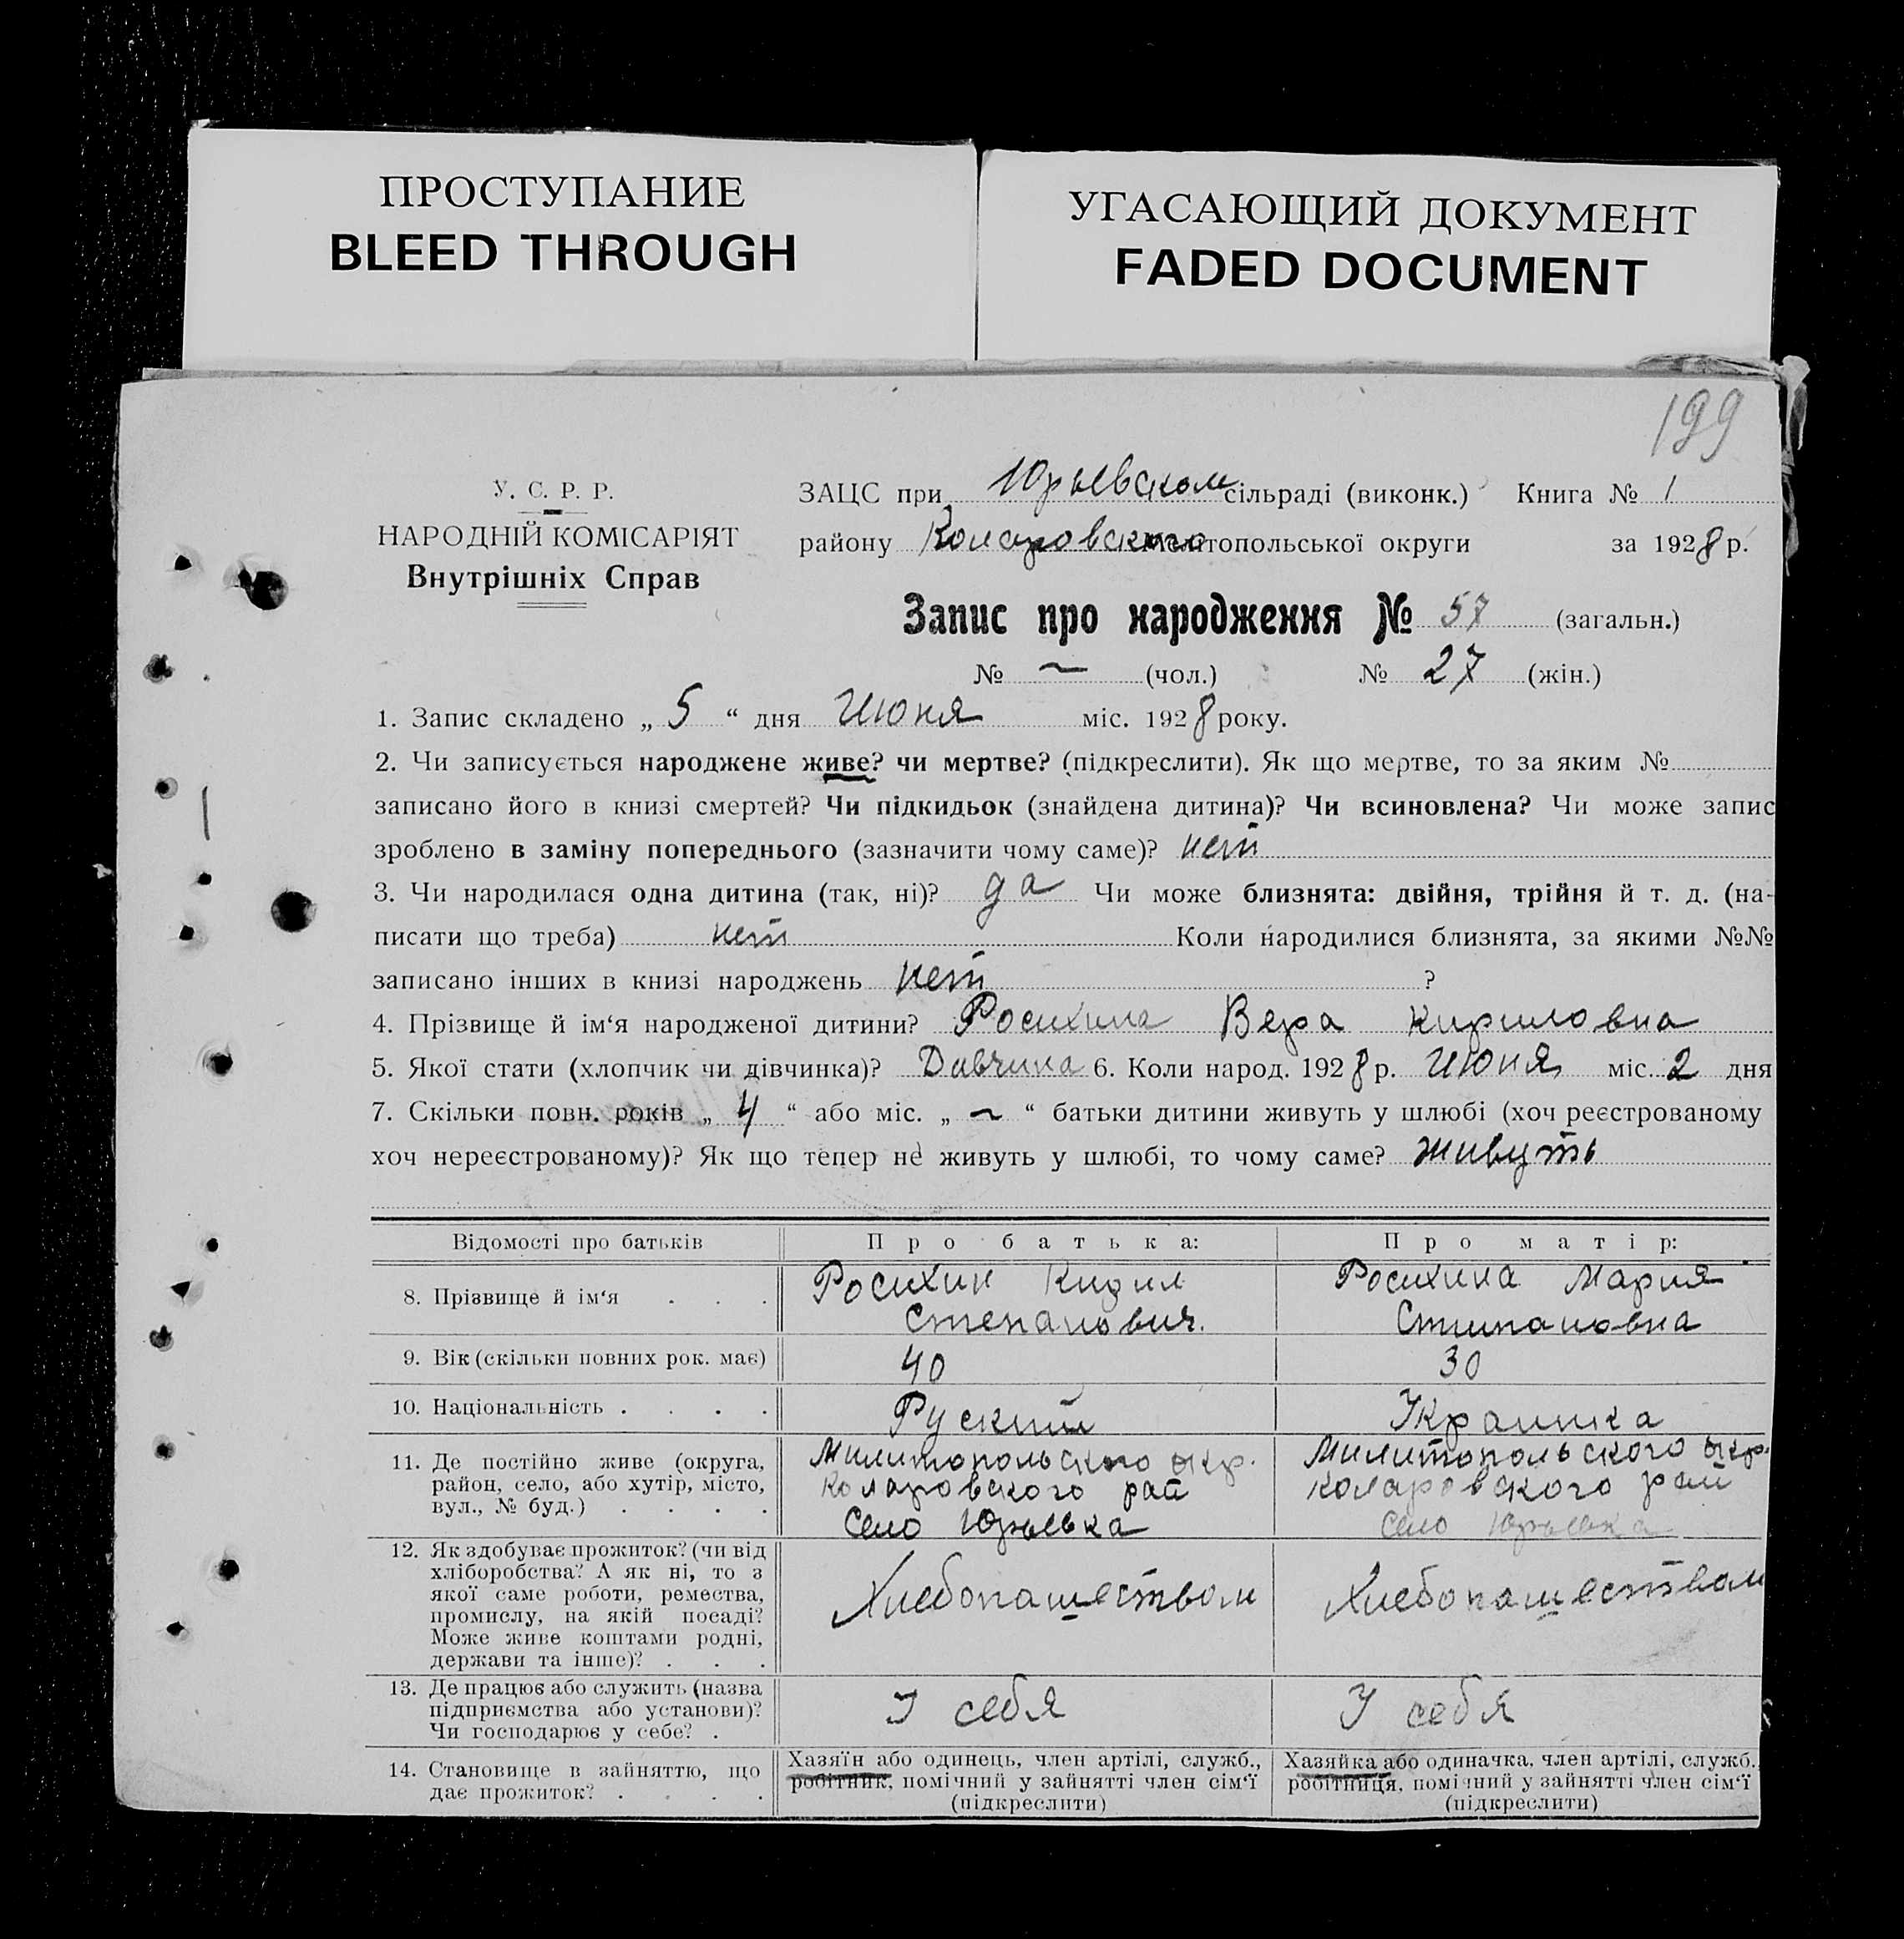 ПРОСТУПАНИЕ
BLEED THROUGH
УГАСАЮЩИЙ ДОКУМЕНТ
FADED DOCUMENT
199
У. С. Р. Р.
НАРОДНІЙ КОМІСАРІЯТ
Внутрішніх Справ
ЗАЦС при Юрьевском сільраді (виконк.) Книга № 1
району Коларовского Мелітопольської округи за 1928 р.
Запис про народження № 57 (загальн.)
№ ~ (чол.) № 27 (жін.)
1. Запис складено „ 5 “ дня Июня міс. 1928 року.
2. Чи записується народжене живе? чи мертве? (підкреслити). Як що мертве, то за яким №
записано його в книзі смертей? Чи підкидьок (знайдена дитина)? Чи всиновлена? Чи може запис
зроблено в заміну попереднього (зазначити чому саме)? нет
3. Чи народилася одна дитина (так, ні)? да Чи може близнята: двійня, трійня й т. д. (на-
писати що треба) нет Коли народилися близнята, за якими №№
записано інших в книзі народжень нет ?
4. Прізвище й ім‘я народженої дитини? Росихина Вера Кириловна
5. Якої стати (хлопчик чи дівчинка)? Дивчина 6. Коли народ. 1928 р. Июня міс. 2 дня
7. Скільки повн. років „ 4 “ або міс. „ ~ “ батьки дитини живуть у шлюбі (хоч реєстрованому
хоч нереєстрованому)? Як що тепер не живуть у шлюбі, то чому саме? живуть
Відомості про батьків Про батька: Про матір:
8. Прізвище й ім‘я . . . Росихин Кирил Росихина Мария
Степанович. Стипановна
9. Вік (скільки повних рок. має) 40 30
10. Національність . . . . Руский Украинка
11. Де постійно живе (округа, Милитопольского окр. Милитопольского окр.
район, село, або хутір, місто, Коларовского рай Коларовского рай
вул., № буд.) . . . . Село Юрьевка Село Юрьевка
12. Як здобуває прожиток? (чи від
хліборобства? А як ні, то з
якої саме роботи, ремества, Хлебопашеством Хлебопашеством
промислу, на якій посаді?
Може живе коштами родні,
держави та інше)? . . .
13. Де працює або служить (назва
підприємства або установи)? У себя У себя
Чи господарює у себе? .
14. Становище в зайняттю, що Хазяїн або одинець, член артілі, служб., Хазяйка або одиначка, член артілі, служб.,
дає прожиток? . . . . робітник, помічний у зайнятті член сім‘ї робітниця, помічний у зайнятті член сім‘ї
(підкреслити) (підкреслити)